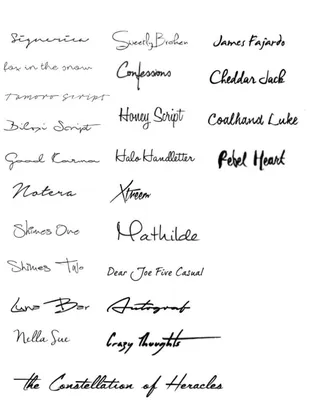 Signerica
Sweetly Broken
James Fajardo
fox in the snow
Confessions
Cheddar Jack
Tamoro Script
Honey Script
Coalhand Luke
Biloxi Script
Halo Handletter
Rebel Heart
Good Karma
Xtreem
Notera
Mathilde
Shimes One
Dear Joe Five Casual
Shimes Two
Autograf
Luna Bar
Crazy Thoughts
Nella Sue
the Constellation of Heracles